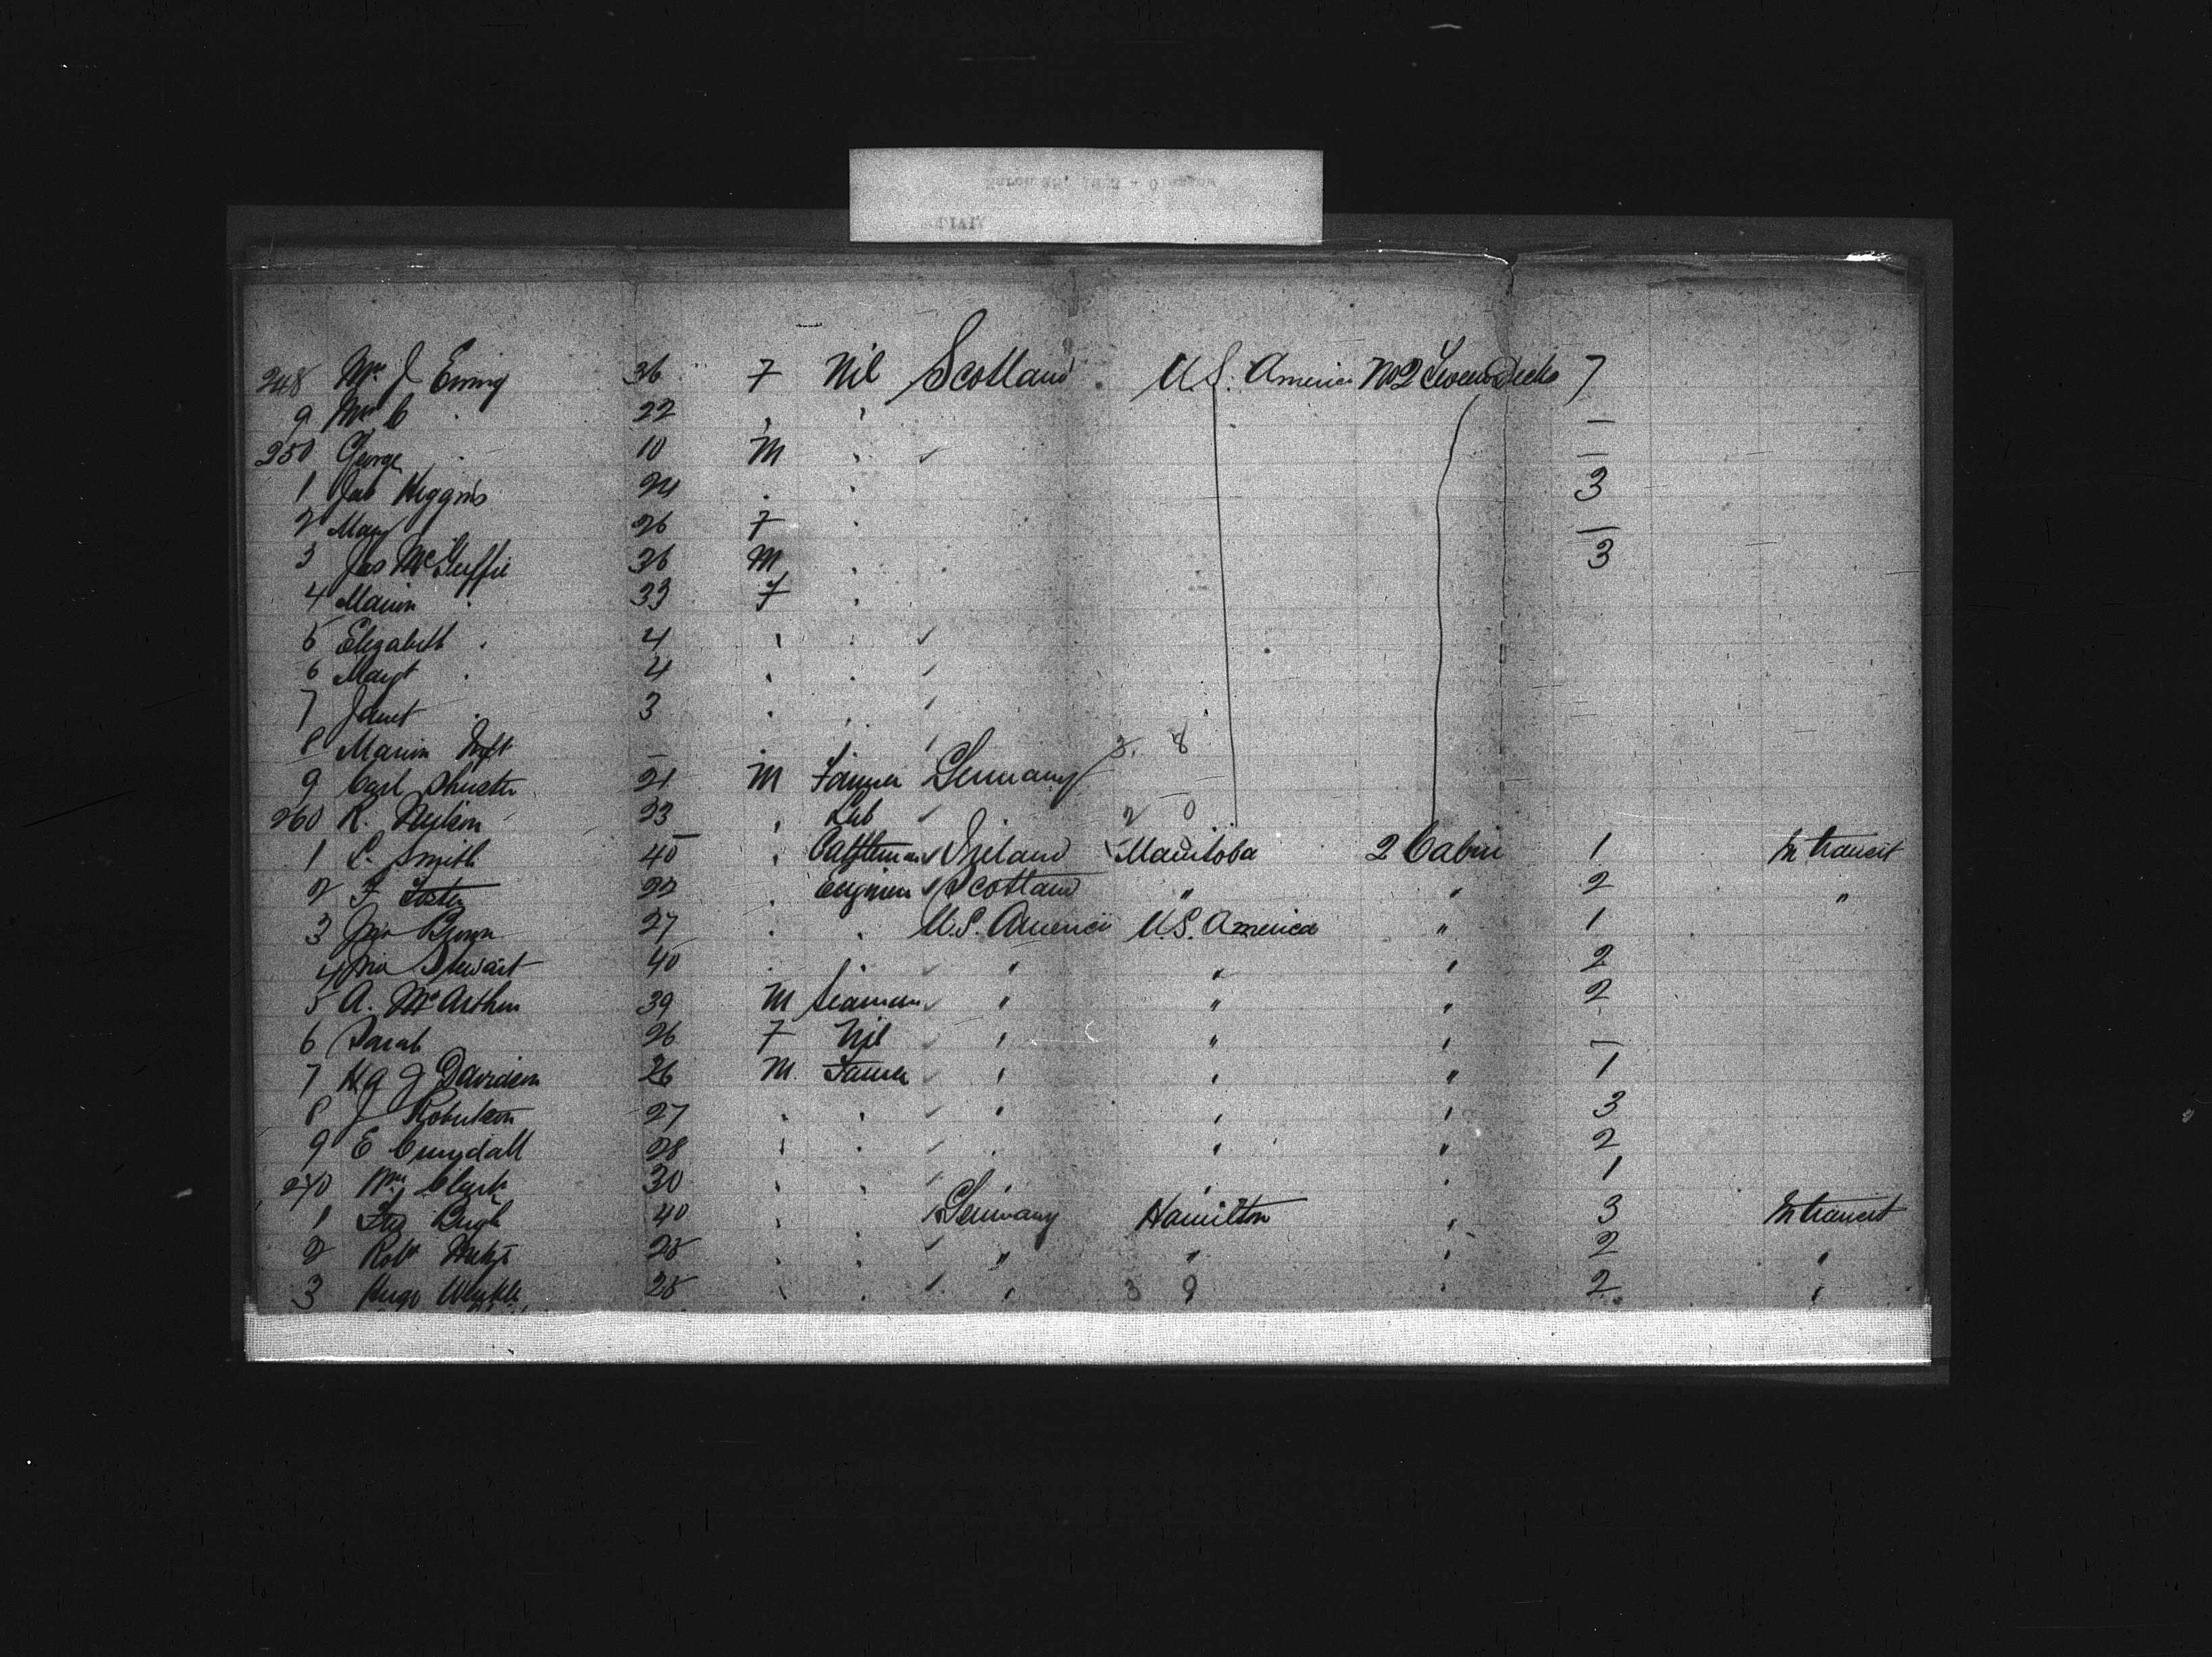 248 Mrs J Ewing 36 F Nil Scotland U.S. America No 2 Lower Decks 7
9 Mrs C " 22 " " —
250 George " 10 M " —
1 Jas Higgins 24 " " 3
2 Mary 26 F " —
3 Jas McGuffie 36 M " 3
4 Marion " 33 F "
5 Elizabeth " 4 " "
6 Margt " 4 " "
7 Janet " 3 " "
8 Marion Inft — 3. 8
9 Carl 21 M Germany
260 R. Neilson 23 " Lab 2 0
1 Smith 40 " Cattleman Ireland Manitoba 2 Cabin 1 In transit
2 F Foster 22 " Engineer Scotland " " 2 "
3 Jno Brown 27 " " U.S. America U.S. America " 1
4 Jno Stewart 40 " " " " " 2
5 A. McArthur 39 M Seaman " " " 2
6 Sarah 26 F Nil " " " —
7 H A J Davidson 26 M. Farmer " " " 1
8 J Robertson 27 " " " " " 3
9 E 28 " " " " " 2
270 Wm Clark 30 " " " " " 1
1 40 " " Germany Hamilton " 3 In transit
2 Robt 28 " " " " " 2 "
3 Hugo 28 " " " 3 9 " 2 "